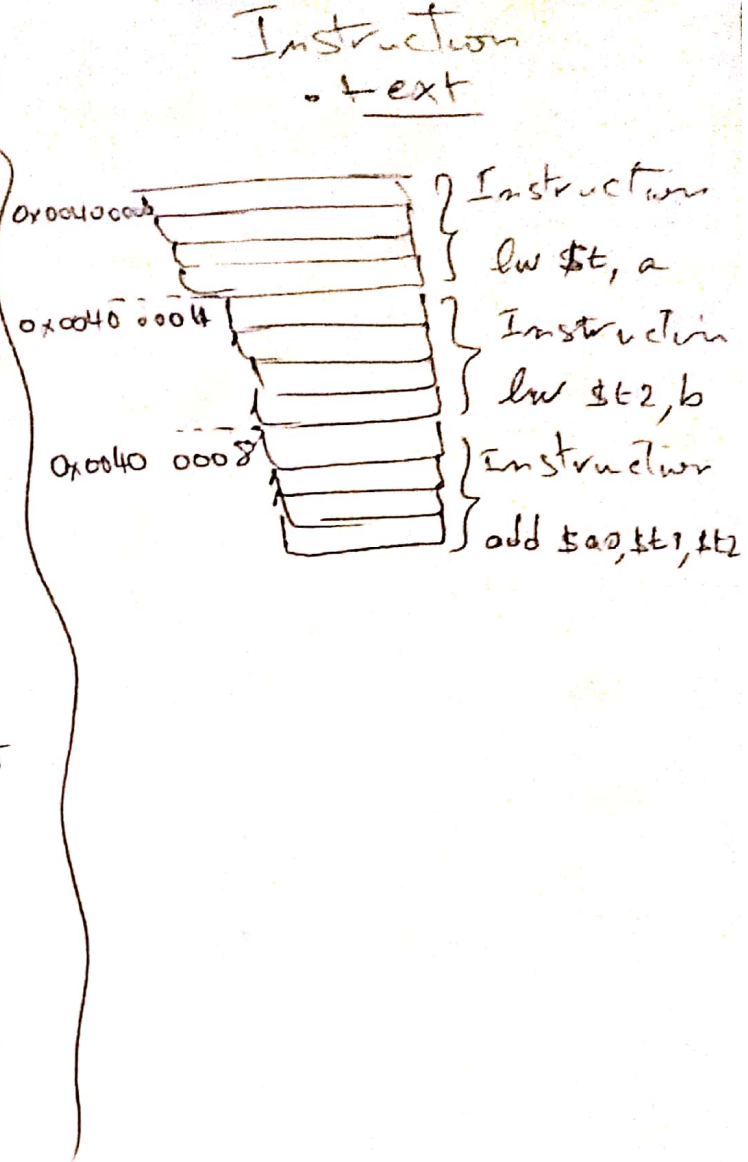 Instruction
.text
Instruction
lw $t, a
0x0040 0004
Instruction
lw $t2, b
0x0040 0008
Instruction
add $a0, $t1, $t2